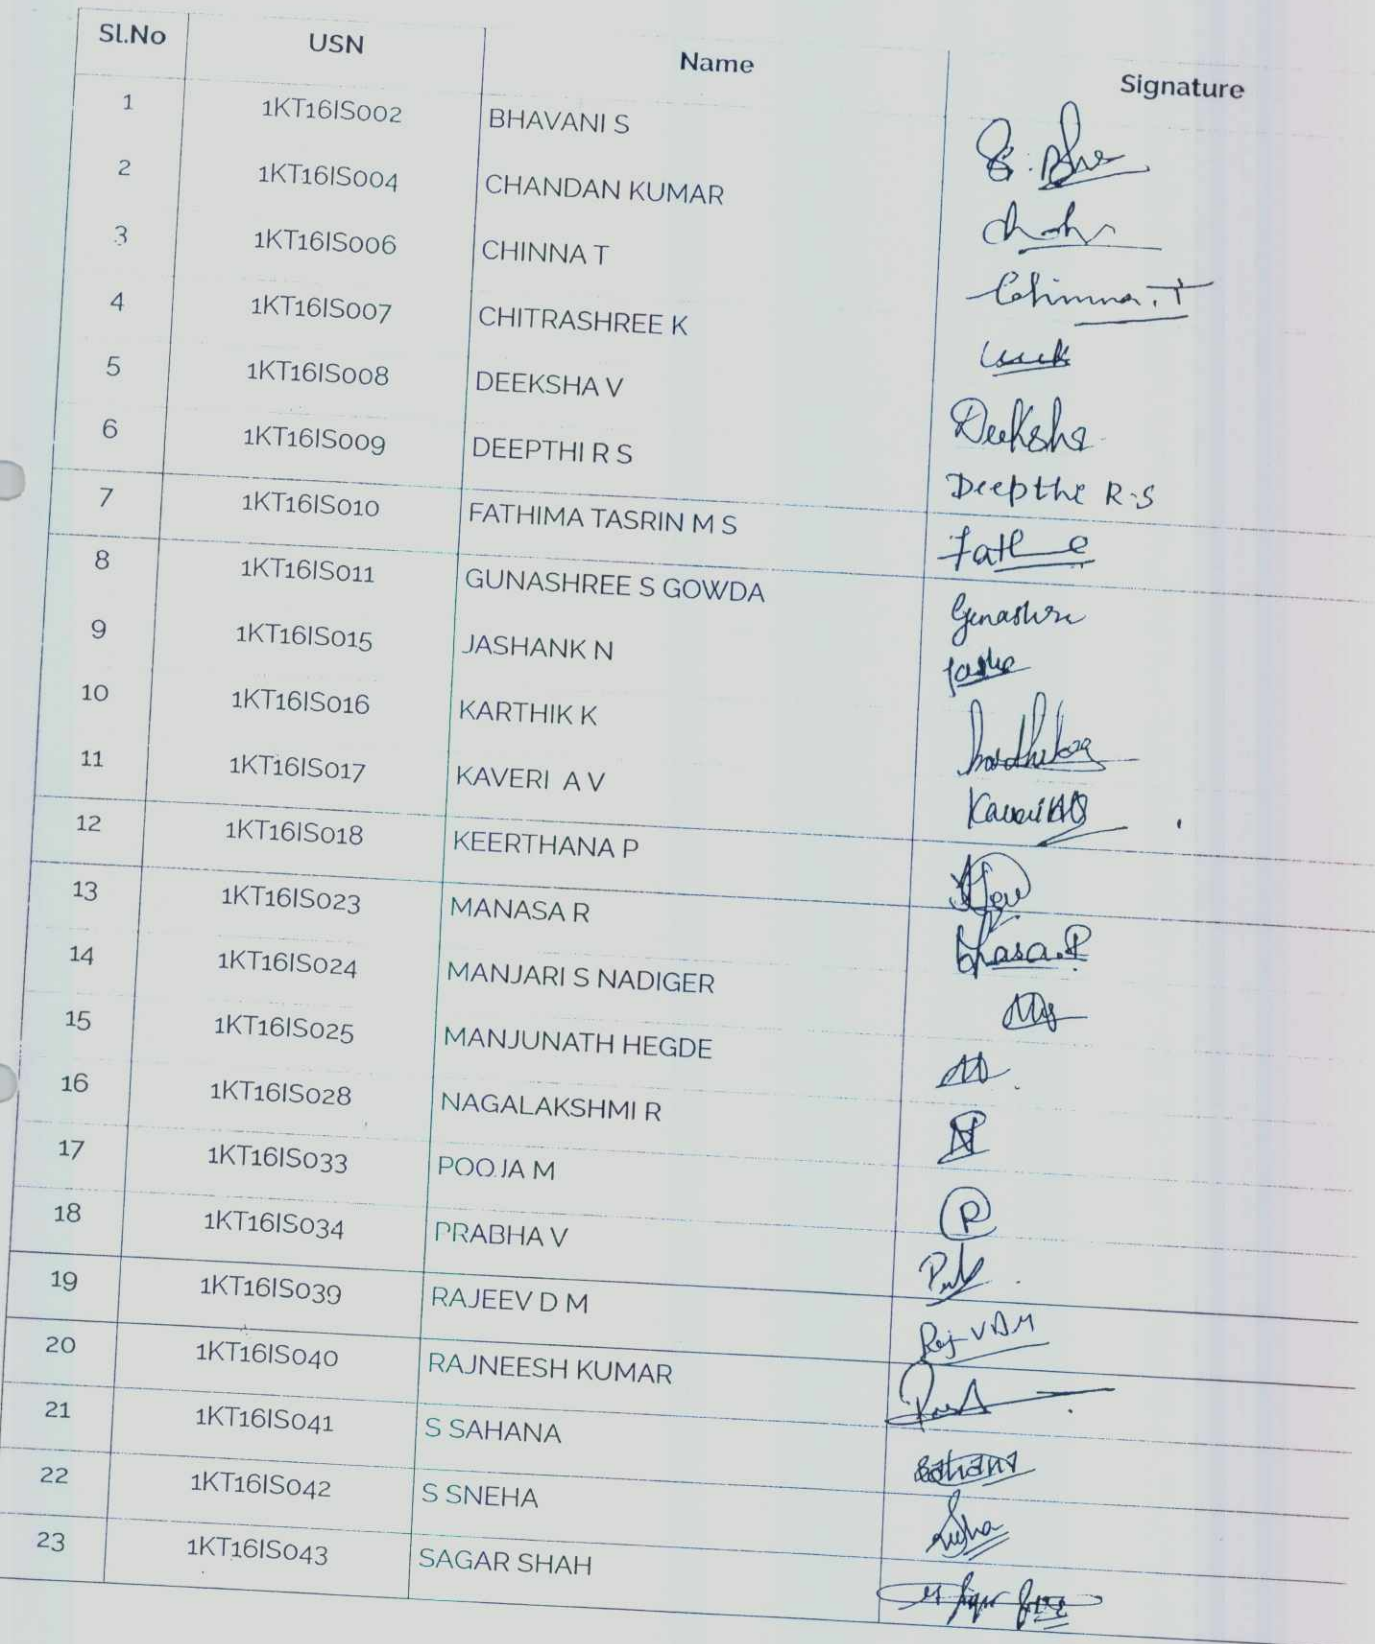 Sl.No USN Name Signature
1 1KT16IS002 BHAVANI S
2 1KT16IS004 CHANDAN KUMAR
3 1KT16IS006 CHINNA T Chinna.T
4 1KT16IS007 CHITRASHREE K
5 1KT16IS008 DEEKSHA V Deeksha
6 1KT16IS009 DEEPTHI R S Deepthi R.S
7 1KT16IS010 FATHIMA TASRIN M S
8 1KT16IS011 GUNASHREE S GOWDA
9 1KT16IS015 JASHANK N
10 1KT16IS016 KARTHIK K
11 1KT16IS017 KAVERI A V
12 1KT16IS018 KEERTHANA P
13 1KT16IS023 MANASA R
14 1KT16IS024 MANJARI S NADIGER
15 1KT16IS025 MANJUNATH HEGDE
16 1KT16IS028 NAGALAKSHMI R
17 1KT16IS033 POOJA M P
18 1KT16IS034 PRABHA V
19 1KT16IS039 RAJEEV D M
20 1KT16IS040 RAJNEESH KUMAR
21 1KT16IS041 S SAHANA Sahana
22 1KT16IS042 S SNEHA
23 1KT16IS043 SAGAR SHAH